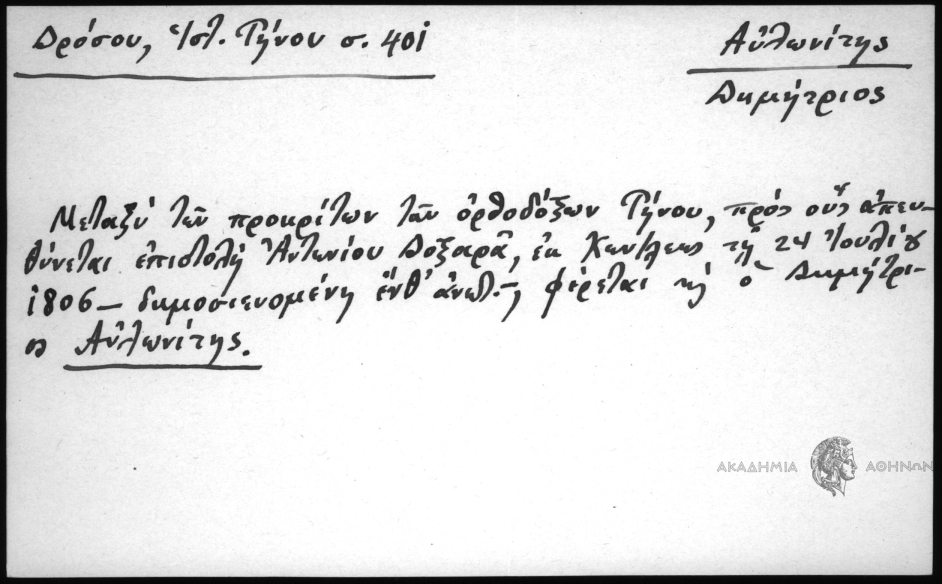 Δρόσου, Ἱστ. Τήνου σ. 401
Αὐλωνίτης
Δημήτριος
Μεταξύ τῶν προκρίτων τῶν ὀρθοδόξων Τήνου, πρός οὓς ἀπευ-
θύνεται ἐπιστολή Ἀντωνίου Δοξαρᾶ, ἐκ Κων/λεως τῇ 24 Ἰουλίου
1806 — δημοσιευομένη ἔνθ' ἀνωτ. —, φέρεται κ ὁ Δημήτρι-
ος Αὐλωνίτης.
ΑΚΑΔΗΜΙΑ ΑΘΗΝΩΝ